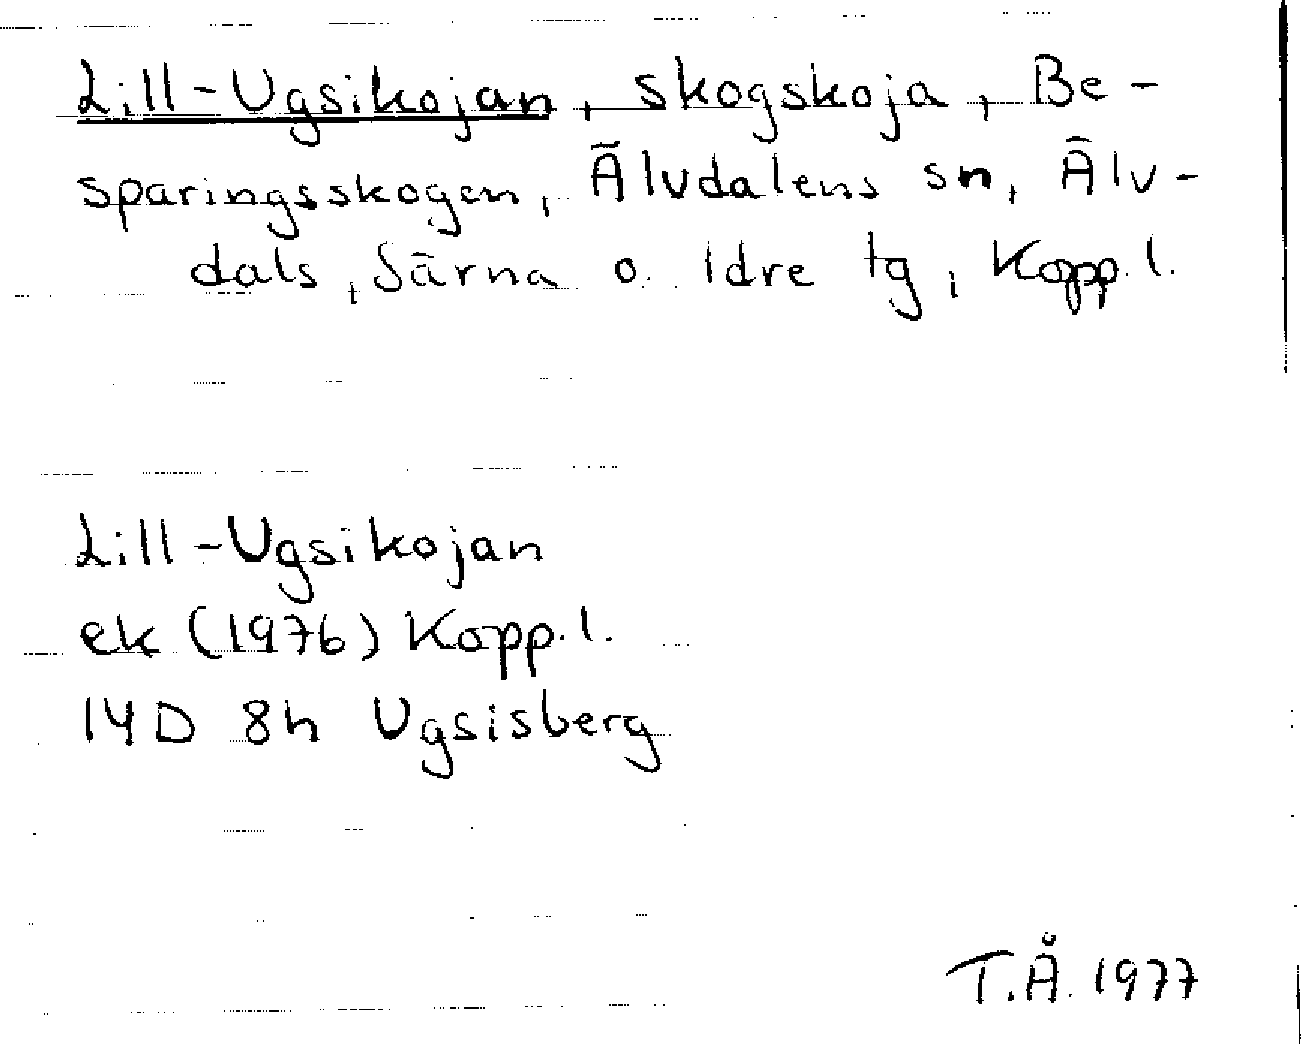 Lill-Ugsikojan, skogskoja, Be-
sparingsskogen, Älvdalens sn, Älv-
dals, Särna o. Idre tg, Kopp. l.
Lill-Ugsikojan
ek (1976) Kopp. l.
14D 8h Ugsisberg
T.Å. 1977